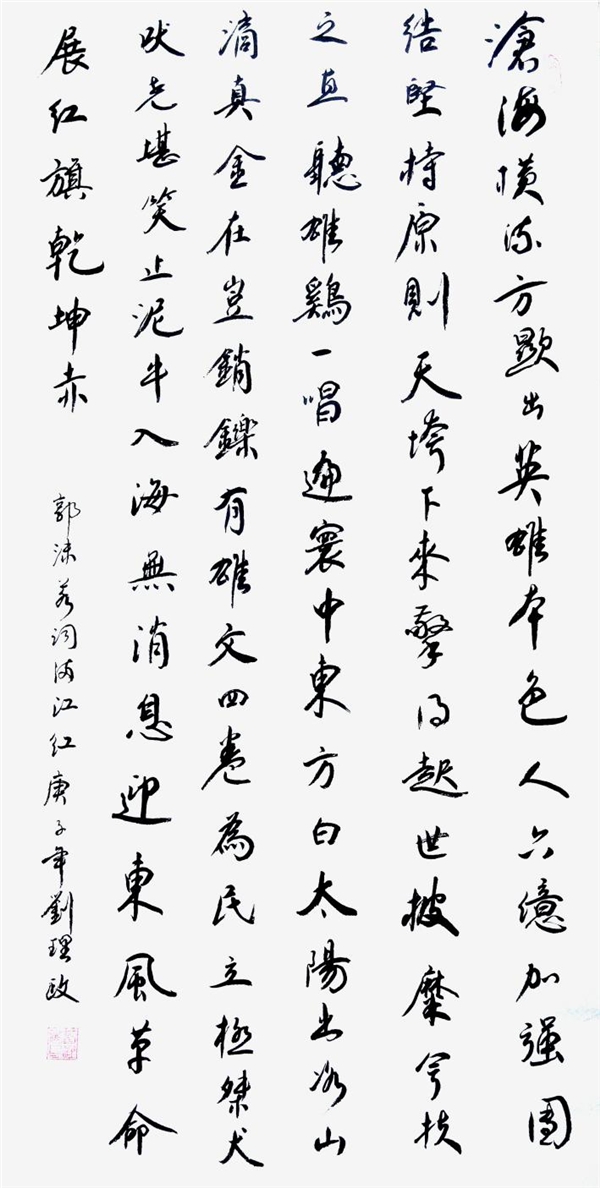 滄海橫流方顯出英雄本色人六億加強團
結堅持原則天垮下來擎得起世披靡兮扶
之直聽雄鷄一唱遍寰中東方白太陽出冰山
滴真金在豈銷鑠有雄文四卷為民立極桀犬
吠堯堪笑止泥牛入海無消息迎東風革命
展紅旗乾坤赤
郭沫若詞滿江紅庚子年劉理政